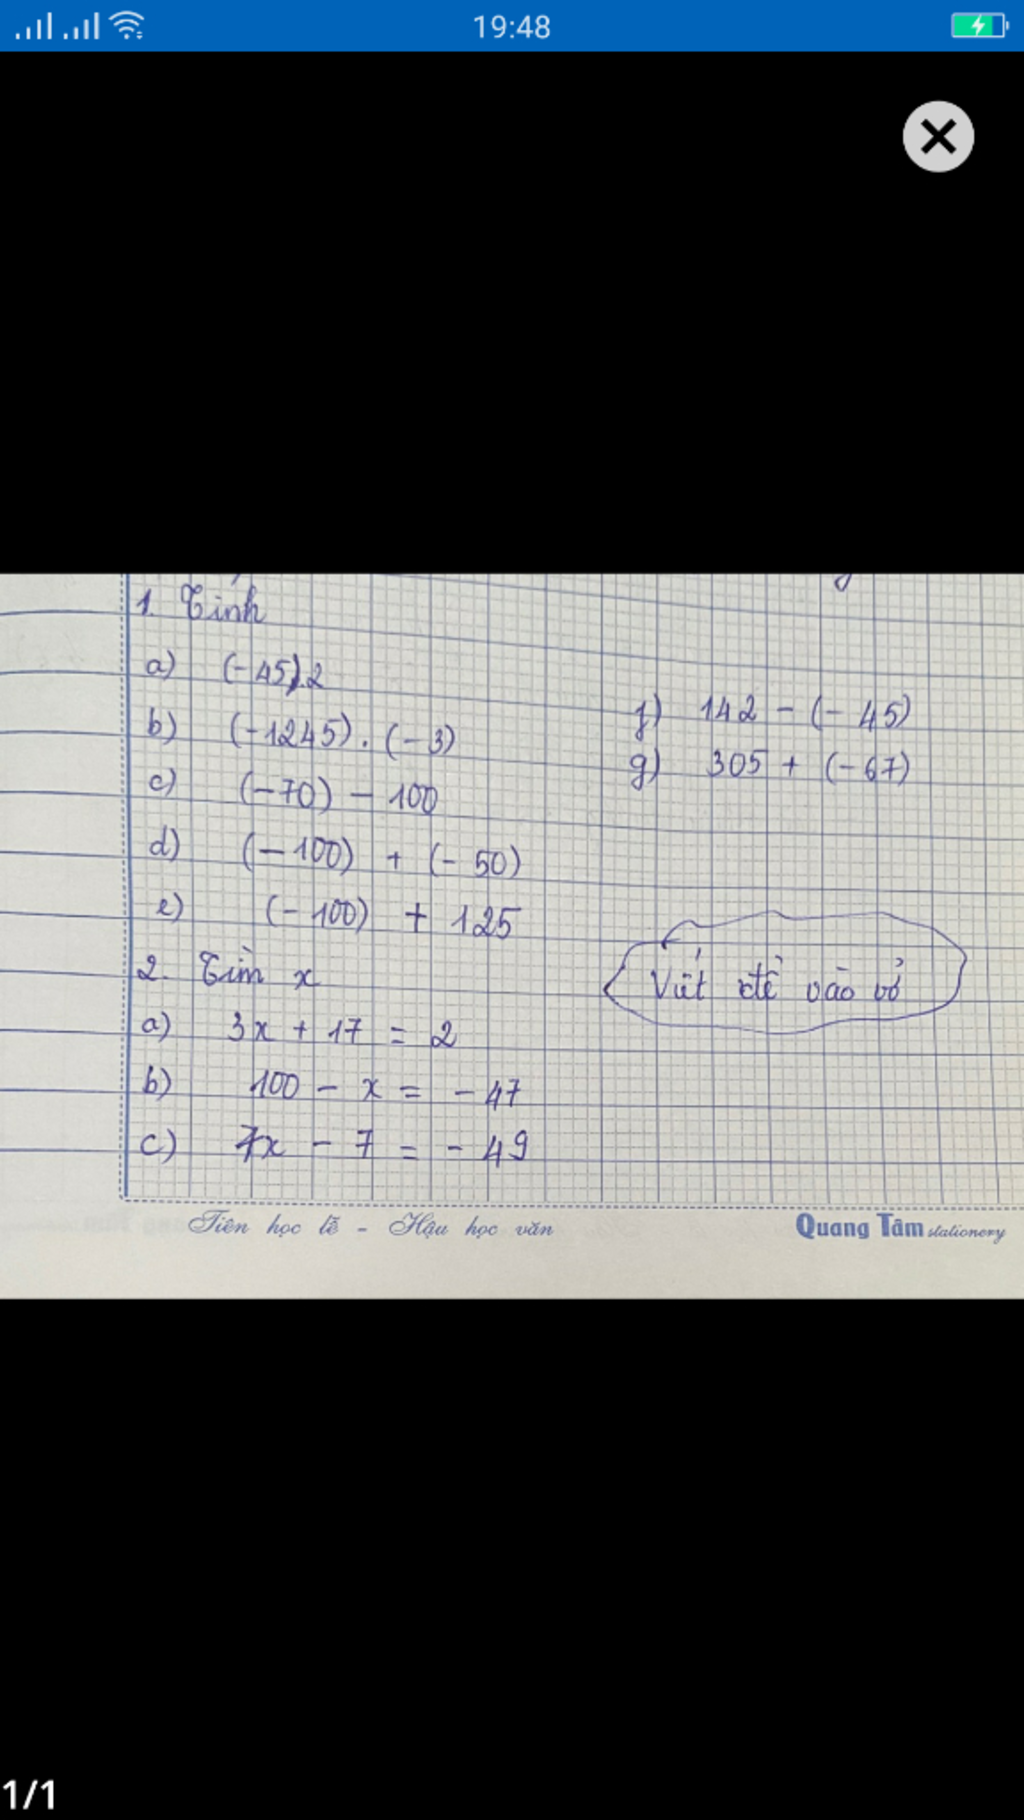 19:48
1. Tính
a) (-45).2
b) (-1245) . (-3)
c) (-70) - 100
d) (-100) + (-50)
e) (-100) + 125
f) 142 - (-45)
g) 305 + (-67)
2. Tìm x
a) 3x + 17 = 2
b) 100 - x = -47
c) 7x - 7 = -49
Viết đề vào vở
Tiên học lễ - Hậu học văn
Quang Tâm stationery
1/1